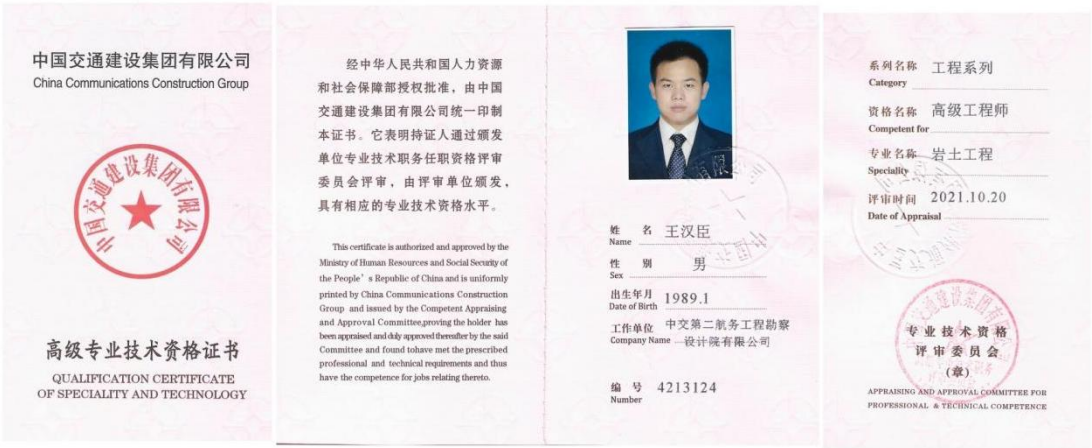 中国交通建设集团有限公司
China Communications Construction Group
中国交通建设集团有限公司
高级专业技术资格证书
QUALIFICATION CERTIFICATE
OF SPECIALITY AND TECHNOLOGY
经中华人民共和国人力资源
和社会保障部授权批准，由中国
交通建设集团有限公司统一印制
本证书。它表明持证人通过颁发
单位专业技术职务任职资格评审
委员会评审，由评审单位颁发，
具有相应的专业技术资格水平。
This certificate is authorized and approved by the
Ministry of Human Resources and Social Security of
the People's Republic of China and is uniformly
printed by China Communications Construction
Group and issued by the Competent Appraising
and Approval Committee,proving the holder has
been appraised and duly approved thereafter by the said
Committee and found tohave met the prescribed
professional and technical requirements and thus
have the competence for jobs relating thereto.
姓 名 王汉臣
Name
性 别 男
Sex
出生年月 1989.1
Date of Birth
工作单位 中交第二航务工程勘察
Company Name 设计院有限公司
编 号 4213124
Number
系列名称 工程系列
Category
资格名称 高级工程师
Competent for
专业名称 岩土工程
Speciality
评审时间 2021.10.20
Date of Appraisal
专业技术资格
评审委员会
(章)
APPRAISING AND APPROVAL COMMITTEE FOR
PROFESSIONAL & TECHNICAL COMPETENCE